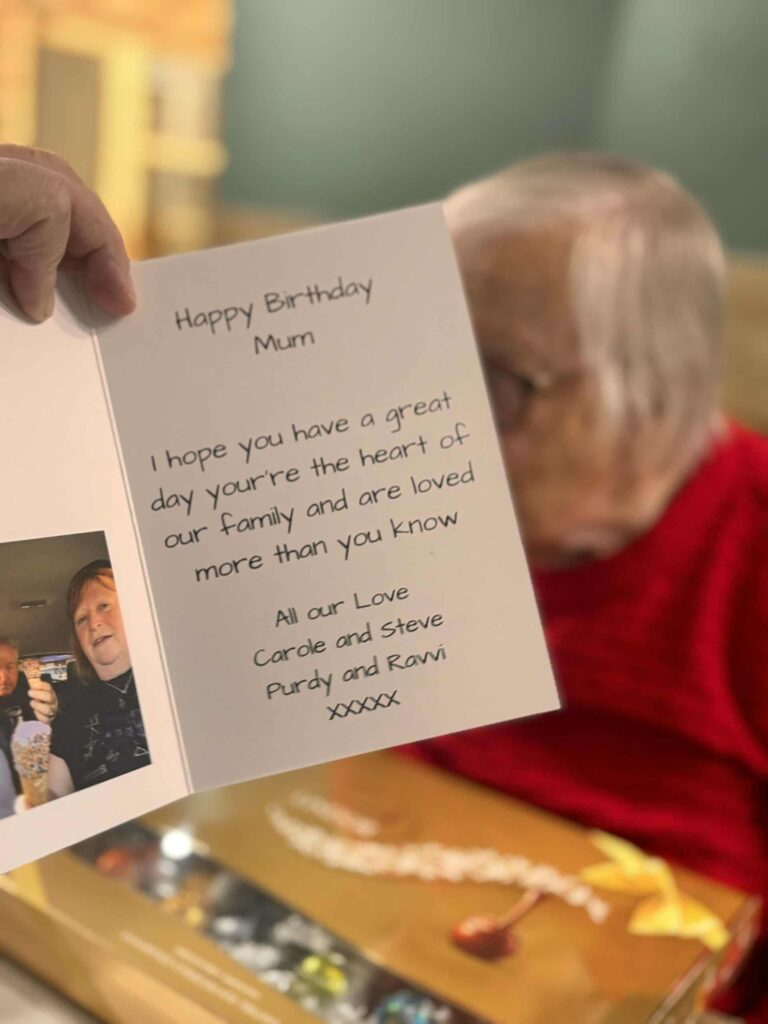 Happy Birthday
Mum
I hope you have a great
day your're the heart of
our family and are loved
more than you know
All our Love
Carole and Steve
Purdy and Ravvi
xxxxx